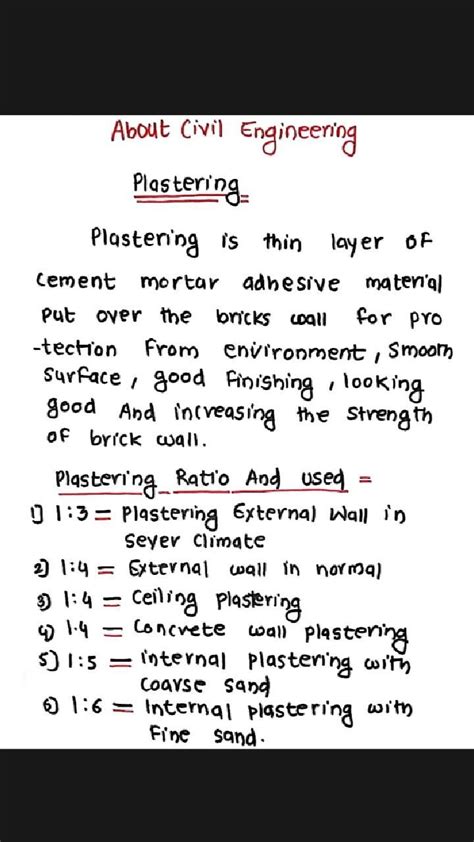 About Civil Engineering
Plastering
Plastering is thin layer of
cement mortar adhesive material
put over the bricks wall for pro
-tection from environment, smooth
surface, good finishing, looking
good And increasing the strength
of brick wall.
Plastering Ratio And used =
1) 1:3 = Plastering External Wall in
Seyer Climate
2) 1:4 = External wall in normal
3) 1:4 = Ceiling plastering
4) 1.4 = Concrete wall plastering
5) 1:5 = internal plastering with
coarse sand
6) 1:6 = Internal plastering with
fine sand.